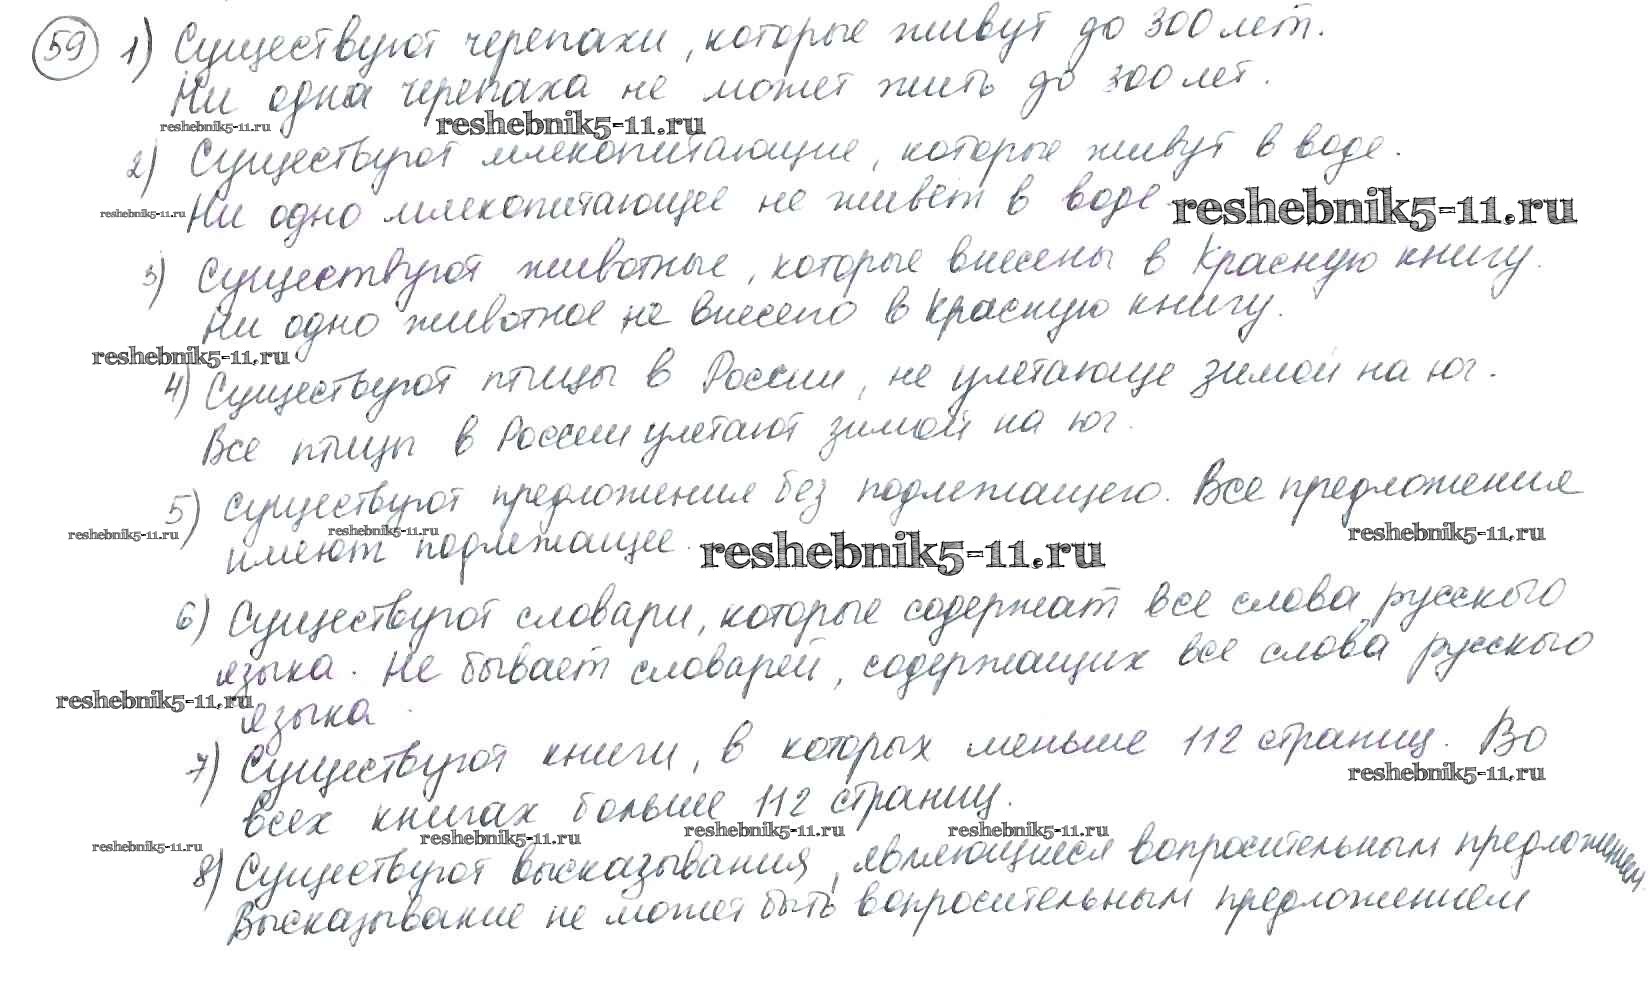 59 1) Существуют черепахи, которые живут до 300 лет.
Ни одна черепаха не может жить до 300 лет.
reshebnik5-11.ru reshebnik5-11.ru
2) Существуют млекопитающие, которые живут в воде.
reshebnik5-11.ru Ни одно млекопитающее не живёт в воде reshebnik5-11.ru
3) Существуют животные, которые внесены в Красную книгу.
Ни одно животное не внесено в Красную книгу.
reshebnik5-11.ru
4) Существуют птицы в России, не улетающие зимой на юг.
Все птицы в России улетают зимой на юг.
5) Существуют предложения без подлежащего. Все предложения
reshebnik5-11.ru reshebnik5-11.ru reshebnik5-11.ru
имеют подлежащее. reshebnik5-11.ru
6) Существуют словари, которые содержат все слова русского
языка. Не бывает словарей, содержащих все слова русского
reshebnik5-11.ru
языка.
7) Существуют книги, в которых меньше 112 страниц. Во
reshebnik5-11.ru
всех книгах больше 112 страниц.
reshebnik5-11.ru reshebnik5-11.ru reshebnik5-11.ru reshebnik5-11.ru
8) Существуют высказывания, являющиеся вопросительным предложением.
Высказывание не может быть вопросительным предложением